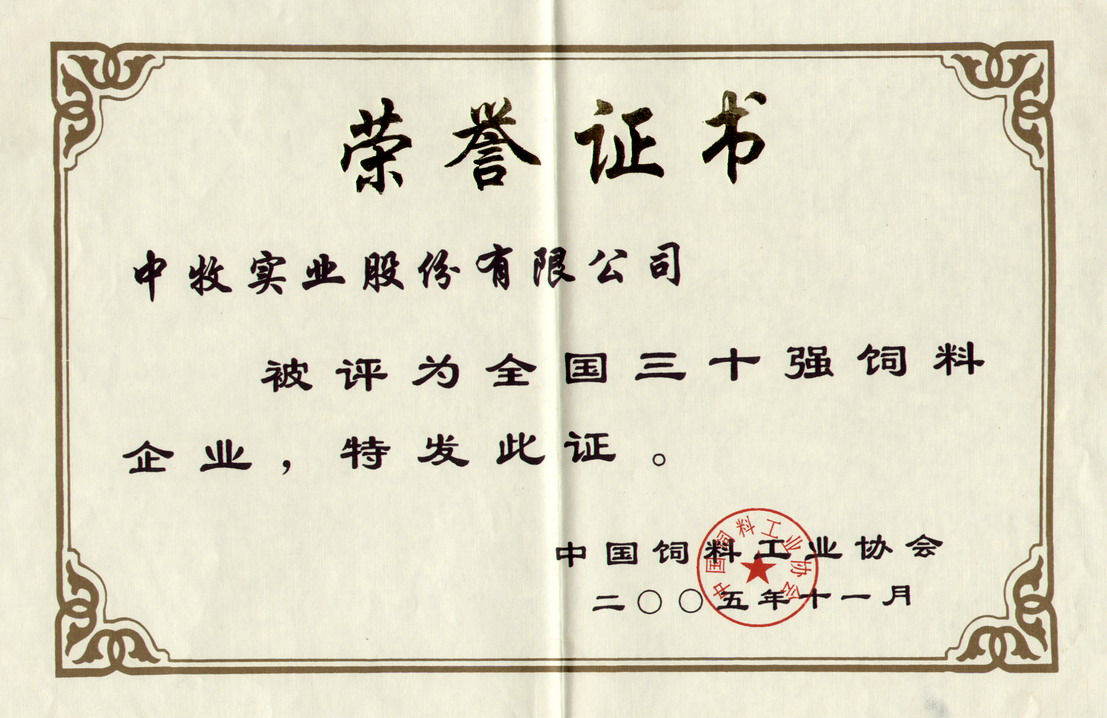 荣誉证书
中牧实业股份有限公司
被评为全国三十强饲料
企业，特发此证。
中国饲料工业协会
二〇〇五年十一月
中国饲料工业协会